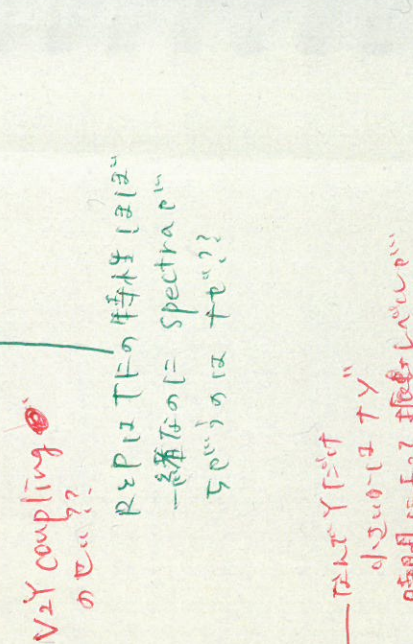 VとY coupling
のせい??
RとPは の特性ほぼ
一緒なのに Spectraが
ちがうのはなぜ??
なんでYだけ
小さいのはナゾ
時間による